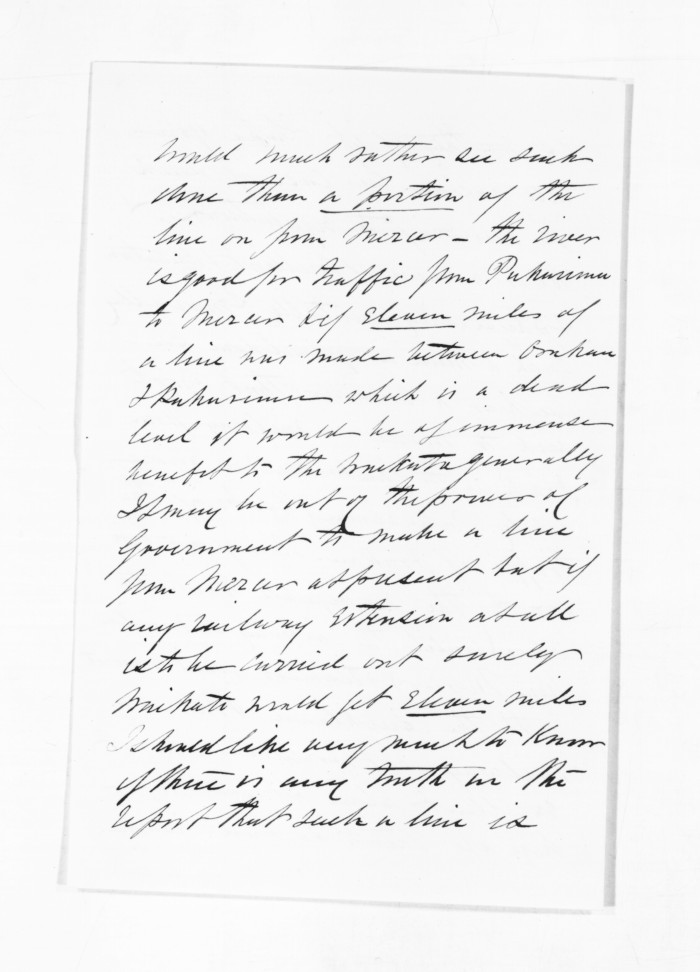 would much rather see such
done than a portion of the
line on from Mercer – the river
is good for traffic from Pukerimu
to Mercer & if Eleven miles of
a line was made between
& Pukerimu which is a dead
level it would be of immense
benefit to the Waikato generally
It may be out of the power of
Government to make a line
from Mercer at present but if
any railway Extension at all
is to be carried out surely
Waikato would get Eleven miles
I should like very much to Know
if there is any truth in the
report that such a line is